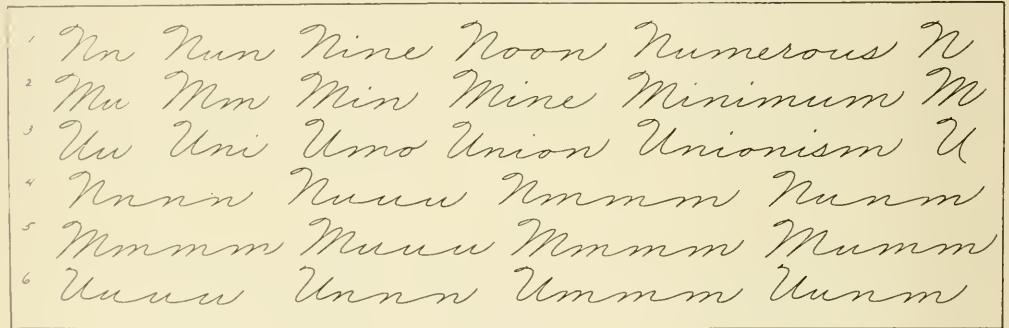 1 Nn Nun Nine Noon Numerous N
2 Mu Mm Min Mine Minimum M
3 Uu Uni Umo Union Unionism U
4 Nnnn Nuuu Nmmm Nunm
5 Mmmm Muuu Mmmm Mumm
6 Uuuu Unnn Ummm Uunm